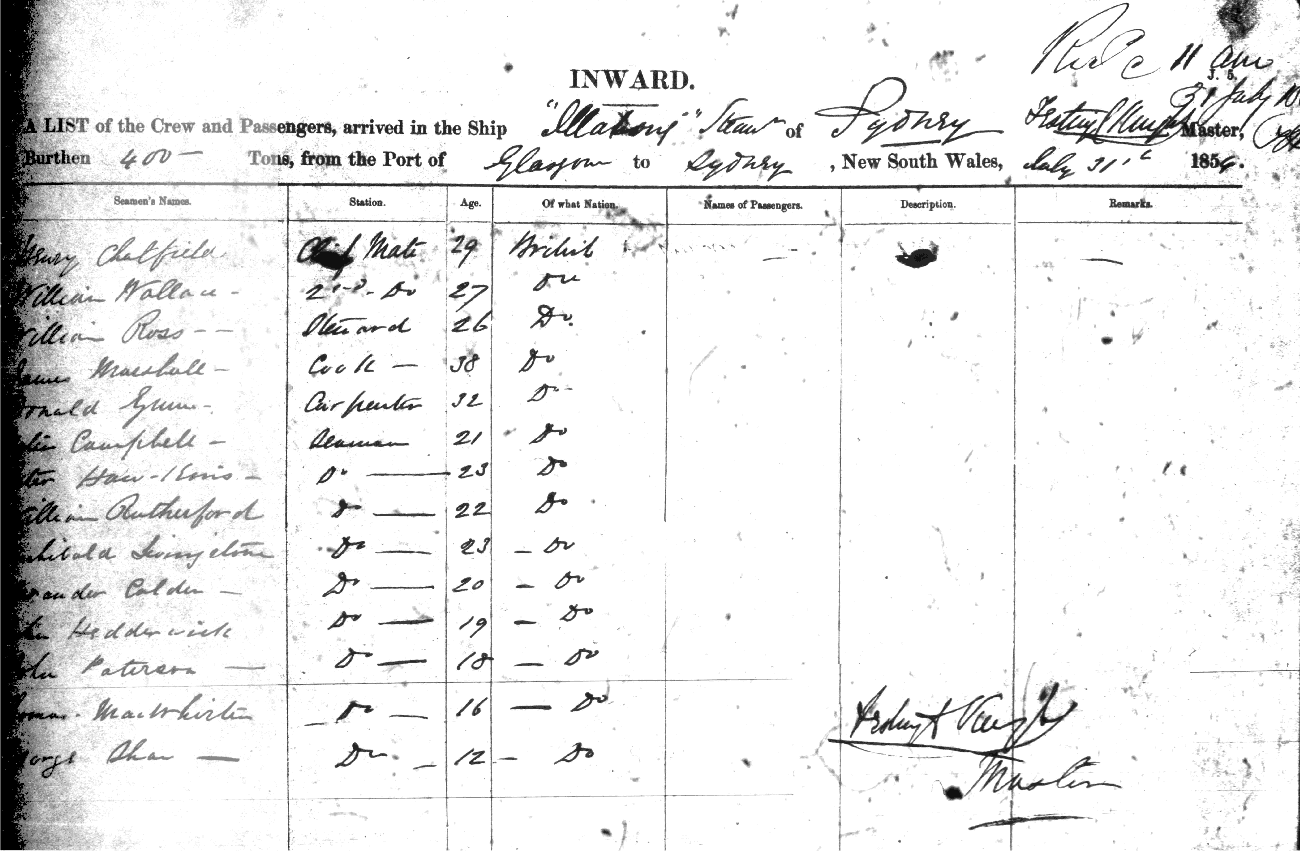 11 am
J. 5.
31 July
INWARD.
A LIST of the Crew and Passengers, arrived in the Ship "Illawong" Steam of Sydney Master,
Burthen 400 Tons, from the Port of Glasgow to Sydney, New South Wales, July 31st 1854.
Seamen's Names. Station. Age. Of what Nation. Names of Passengers. Description. Remarks.
Henry Chatfield Chief Mate 29 British
William Wallace 2nd Do 27 Do
William Ross Steward 26 Do.
James Marshall Cook 38 Do
Donald Gunn Carpenter 32 Do
Campbell Seaman 21 Do
Do 23 Do
William Rutherford Do 22 Do
Archibald Livingstone Do 23 Do
Alexander Calder Do 20 Do
Hedderwick Do 19 Do
John Paterson Do 18 Do
Thomas MacWhirter Do 16 Do
George Shaw Do 12 Do
Master